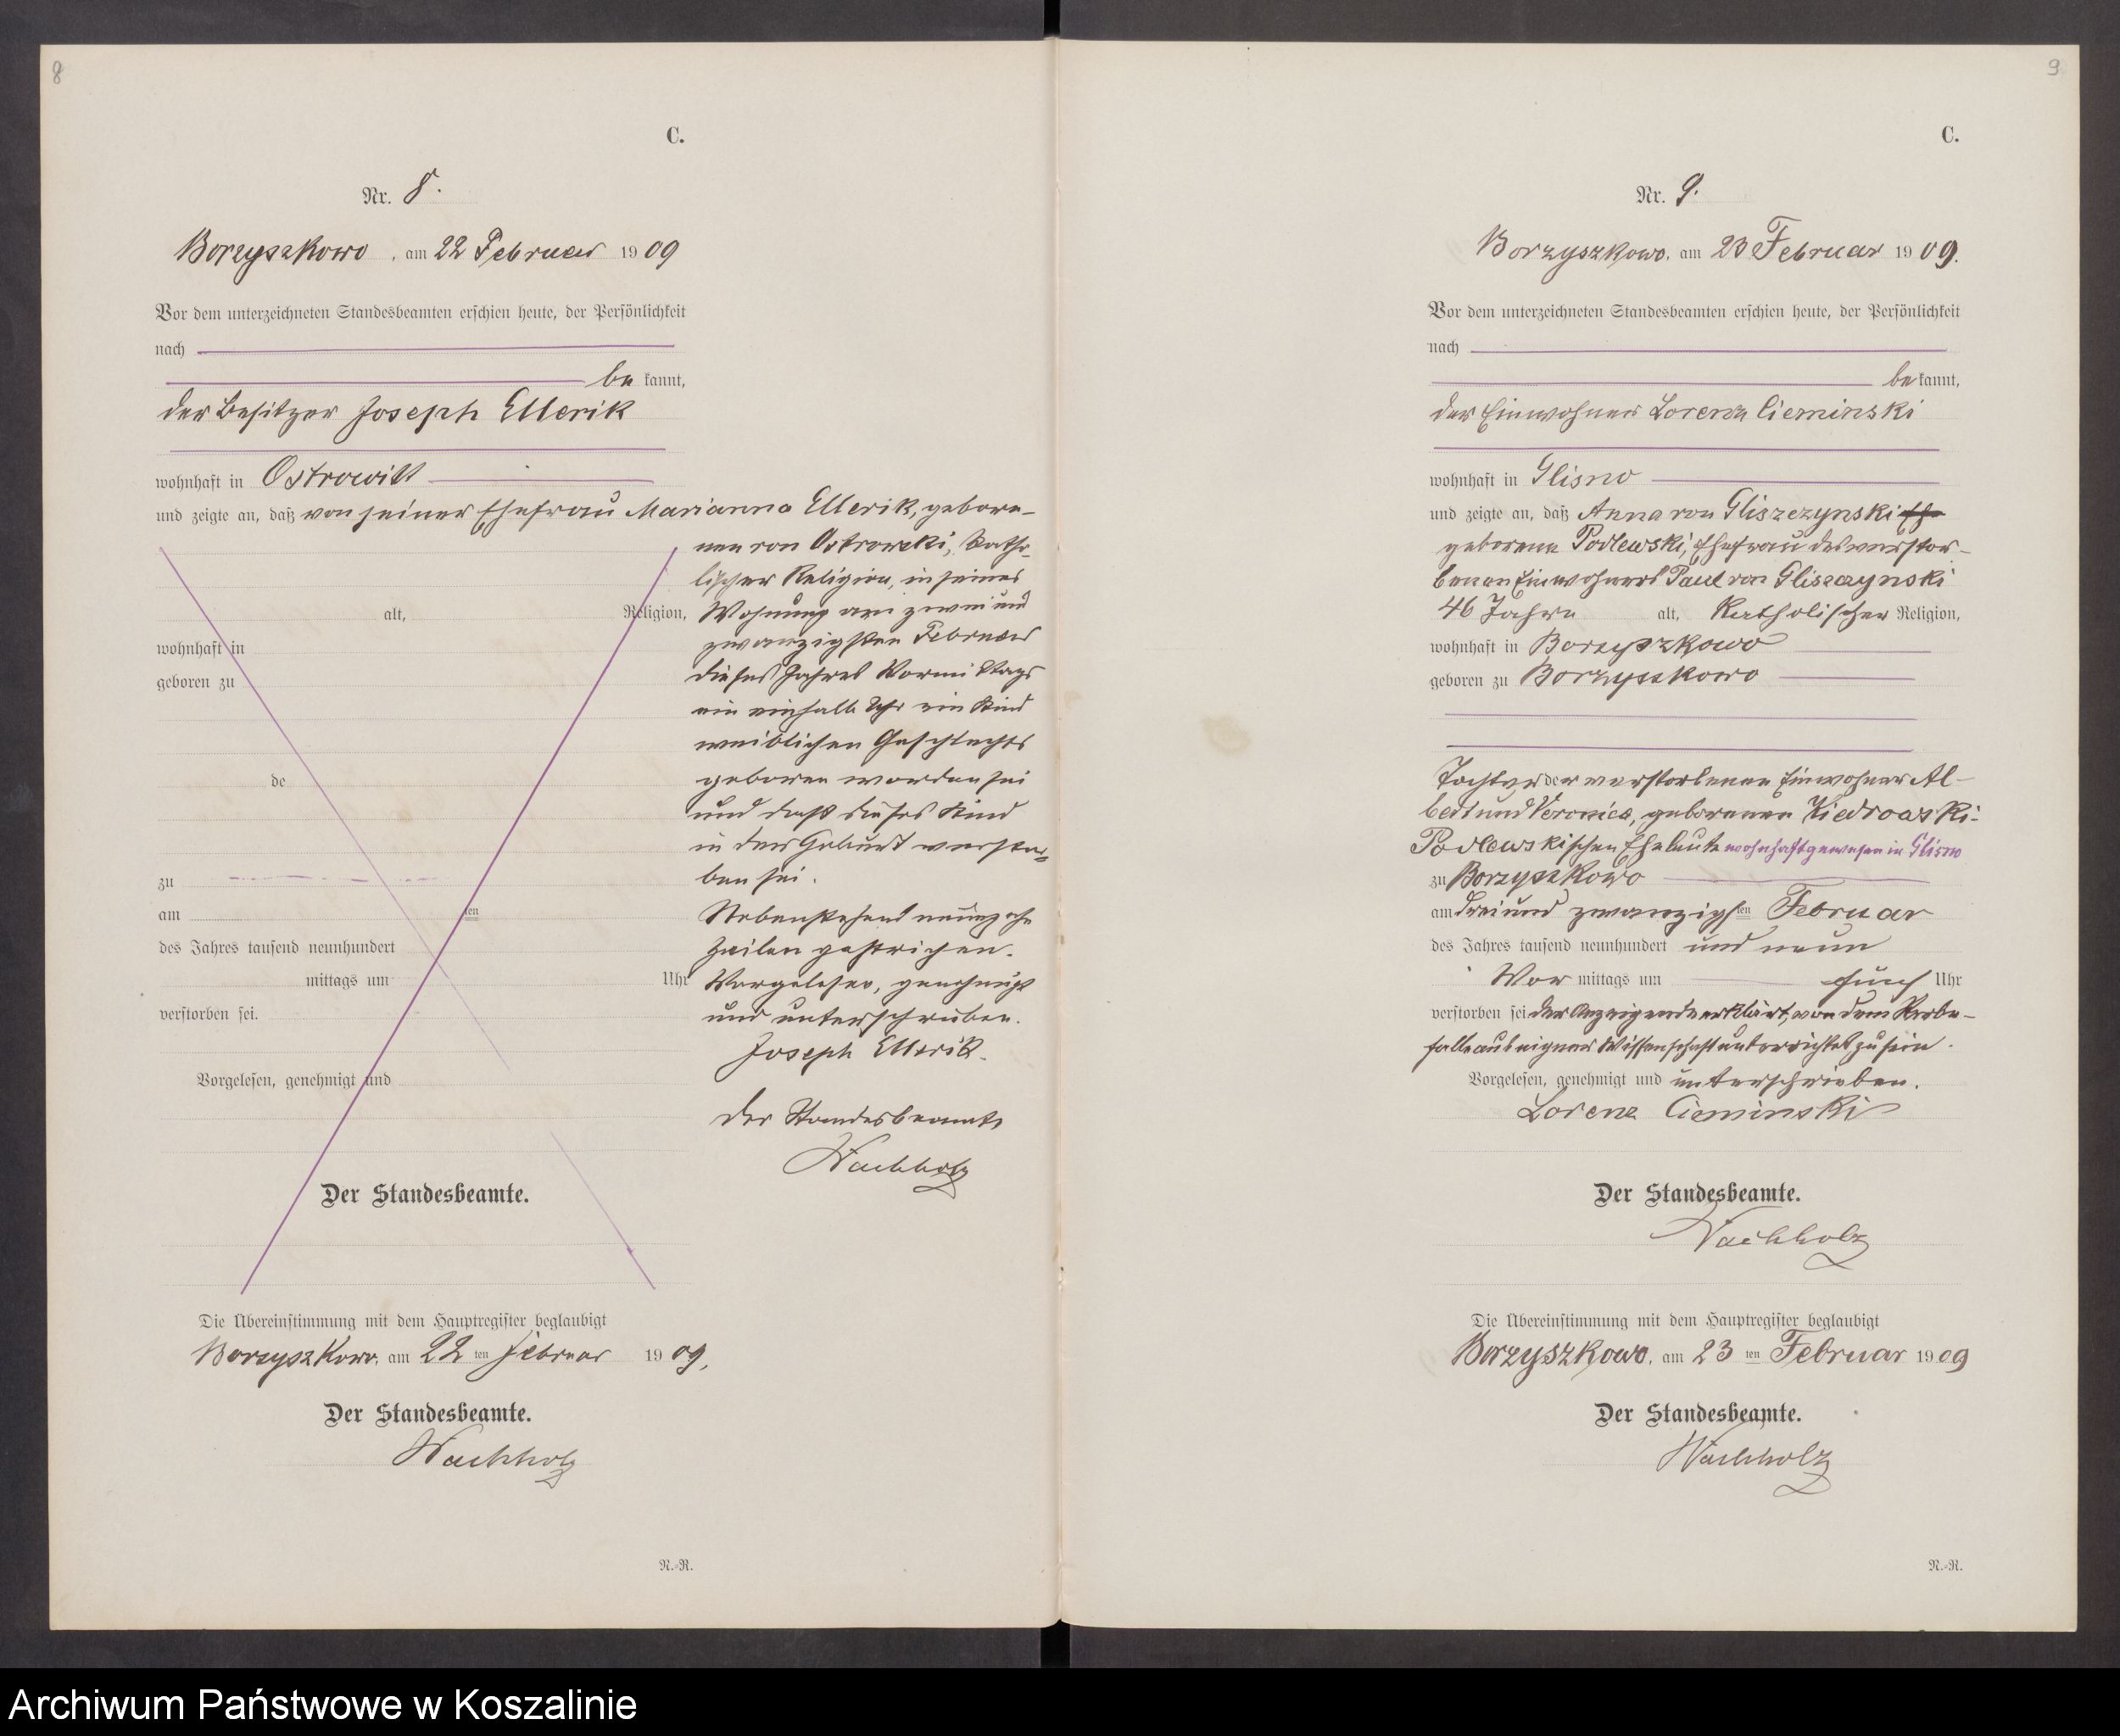 8
C.
Nr. 8.
Borzyszkowo, am 22 Februar 1909
Vor dem unterzeichneten Standesbeamten erschien heute, der Persönlichkeit
nach
be kannt,
der Besitzer Joseph Ellerik
wohnhaft in Ostrowitt
und zeigte an, daß von seiner Ehefrau Marianna Ellerik, gebore-
nen von Ostrowski, katho-
lischer Religion, in seiner
alt, Religion, Wohnung am zwei und
zwanzigsten Februar
wohnhaft in
dieses Jahres Vormittags
geboren zu
ein einhalb Uhr ein Kind
weiblichen Geschlechts
geboren worden sei
de
und daß dieses Kind
in der Geburt verstor-
ben sei.
zu
am ten
Nebenstehend neunzehn
des Jahres tausend neunhundert
Zeilen gestrichen.
mittags um Uhr
Vorgelesen, genehmigt
verstorben sei.
und unterschrieben.
Joseph Ellerik.
Vorgelesen, genehmigt und
Der Standesbeamte
Wachholz
Der Standesbeamte.
Die Übereinstimmung mit dem Hauptregister beglaubigt
Borzyszkowo, am 22 ten Februar 1909,
Der Standesbeamte.
Wachholz
N.-R.
9
C.
Nr. 9.
Borzyszkowo, am 23 Februar 1909.
Vor dem unterzeichneten Standesbeamten erschien heute, der Persönlichkeit
nach
be kannt,
der Einwohner Lorenz Cieminski
wohnhaft in Glisno
und zeigte an, daß Anna von Gliszczynski Ehe
geborene Podlewski, Ehefrau des verstor-
benen Einwohners Paul von Gliszczynski
46 Jahre alt, katholischer Religion,
wohnhaft in Borzyszkowo
geboren zu Borzyszkowo
Tochter der verstorbenen Einwohner Al-
bert und Veronica, geborenen Kiedrowski-
Podlewskischen Eheleute wohnhaft gewesen in Glisno
zu Borzyszkowo
am drei und zwanzigsten Februar
des Jahres tausend neunhundert und neun
Vor mittags um fünf Uhr
verstorben sei der Anzeigende erklärt, von dem Sterbe-
falle aus eigner Wissenschaft unterrichtet zu sein.
Vorgelesen, genehmigt und unterschrieben.
Lorenz Cieminski
Der Standesbeamte.
Wachholz
Die Übereinstimmung mit dem Hauptregister beglaubigt
Borzyszkowo, am 23 ten Februar 1909
Der Standesbeamte.
Wachholz
N.-R.
Archiwum Państwowe w Koszalinie